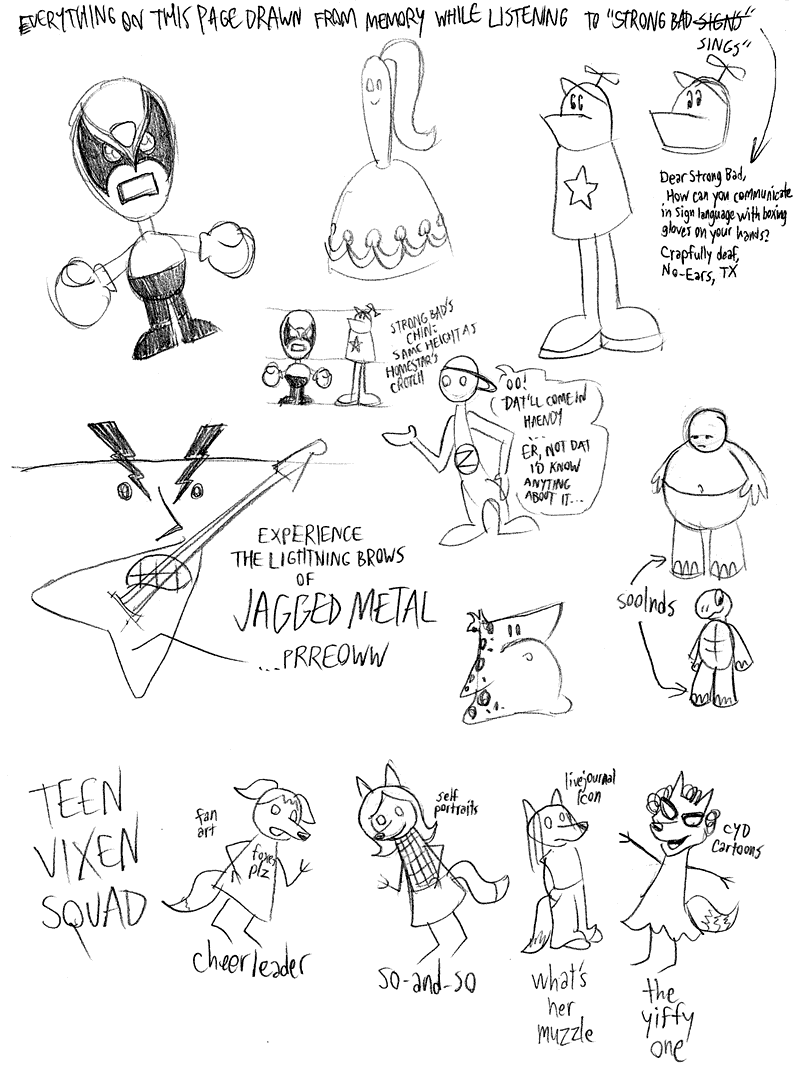 EVERYTHING ON THIS PAGE DRAWN FROM MEMORY WHILE LISTENING TO "STRONG BAD SIGNS"
SINGS"
Dear Strong Bad,
How can you communicate
in sign language with boxing
gloves on your hands?
Crapfully deaf,
No-Ears, TX
STRONG BAD'S
CHIN =
SAME HEIGHT AS
HOMESTAR'S
CROTCH
'OO!
DAT'LL COME IN
HAENDY
...
ER, NOT DAT
I'D KNOW
ANYTING
ABOUT IT...
Z
EXPERIENCE
THE LIGHTNING BROWS
OF
JAGGED METAL
...PRREOWW
soolnds
TEEN
VIXEN
SQUAD
fan
art
foxes
plz
cheerleader
self
portraits
so-and-so
livejournal
icon
what's
her
muzzle
CYD
Cartoons
the
yiffy
one